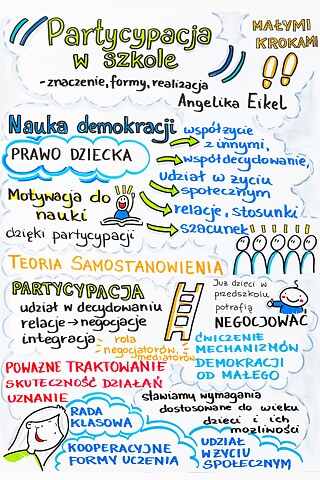 Partycypacja
w szkole
MAŁYMI
KROKAMI
!!
-znaczenie, formy, realizacja
Angelika Eikel
Nauka demokracji
PRAWO DZIECKA
współżycie
z innymi,
współdecydowanie,
udział w życiu
społecznym
relacje, stosunki
szacunek
Motywacja do
nauki
dzięki partycypacji
TEORIA SAMOSTANOWIENIA
PARTYCYPACJA
udział w decydowaniu
relacje → negocjacje
integracja
rola
negocjatorów,
mediatorów
Już dzieci w
przedszkolu
potrafią
NEGOCJOWAĆ
ĆWICZENIE
MECHANIZMÓW
DEMOKRACJI
OD MAŁEGO
POWAŻNE TRAKTOWANIE
SKUTECZNOŚĆ DZIAŁAŃ
UZNANIE
stawiamy wymagania
dostosowane do wieku
dzieci i ich
możliwości
RADA
KLASOWA
KOOPERACYJNE
FORMY UCZENIA
UDZIAŁ
W ŻYCIU
SPOŁECZNYM